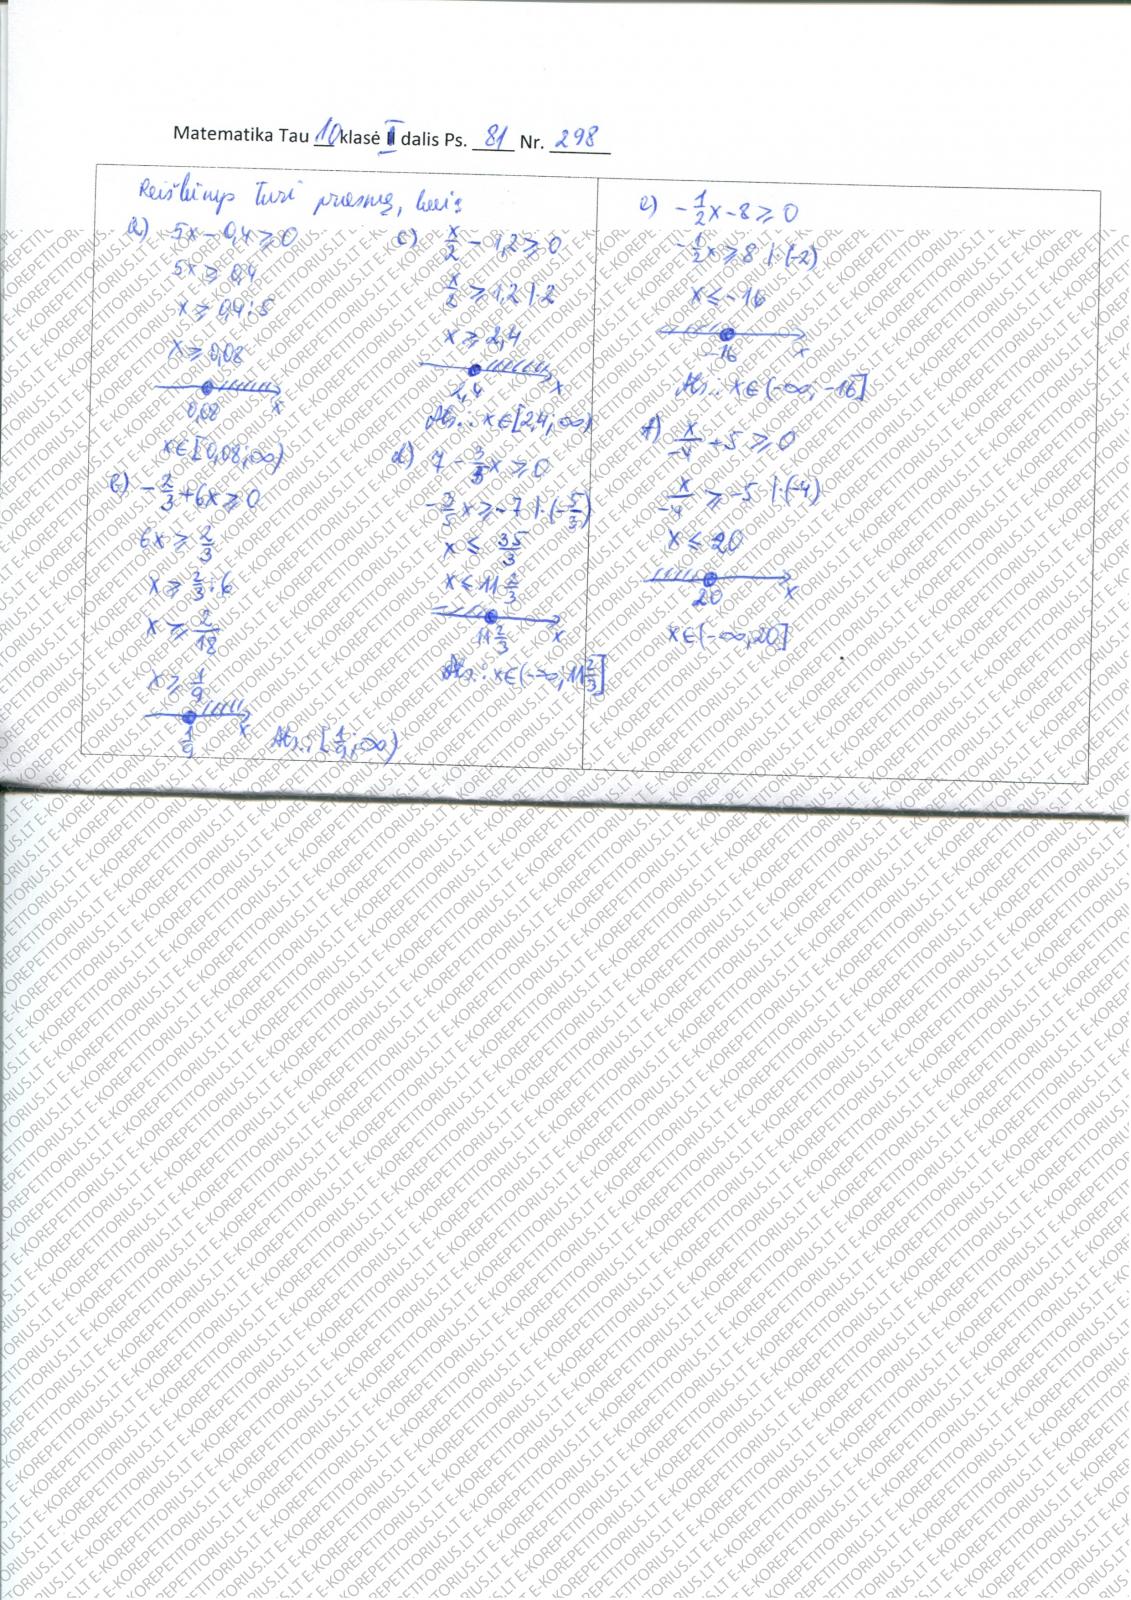 Matematika Tau 10 klasė I dalis Ps. 81 Nr. 298
Reiškinys turi prasmę, kai:
a) 5x - 0,4 ≥ 0
5x ≥ 0,4
x ≥ 0,4 : 5
x ≥ 0,08
0,08 x
x∈[0,08;∞)
b) -2/3 + 6x ≥ 0
6x ≥ 2/3
x ≥ 2/3 : 6
x ≥ 2/18
x ≥ 1/9
1/9 x
Ats.: [1/9;∞)
c) x/2 - 1,2 ≥ 0
x/2 ≥ 1,2 |·2
x ≥ 2,4
2,4 x
Ats.: x∈[2,4;∞)
d) 7 - 3/5x ≥ 0
-3/5x ≥ -7 |·(-5/3)
x ≤ 35/3
x ≤ 11 2/3
11 2/3 x
Ats.: x∈(-∞;11 2/3]
e) -1/2x - 8 ≥ 0
-1/2x ≥ 8 |·(-2)
x ≤ -16
-16 x
Ats.: x∈(-∞;-16]
f) x/-4 + 5 ≥ 0
x/-4 ≥ -5 |·(-4)
x ≤ 20
20 x
x∈(-∞;20]
E-KOREPETITORIUS.LT